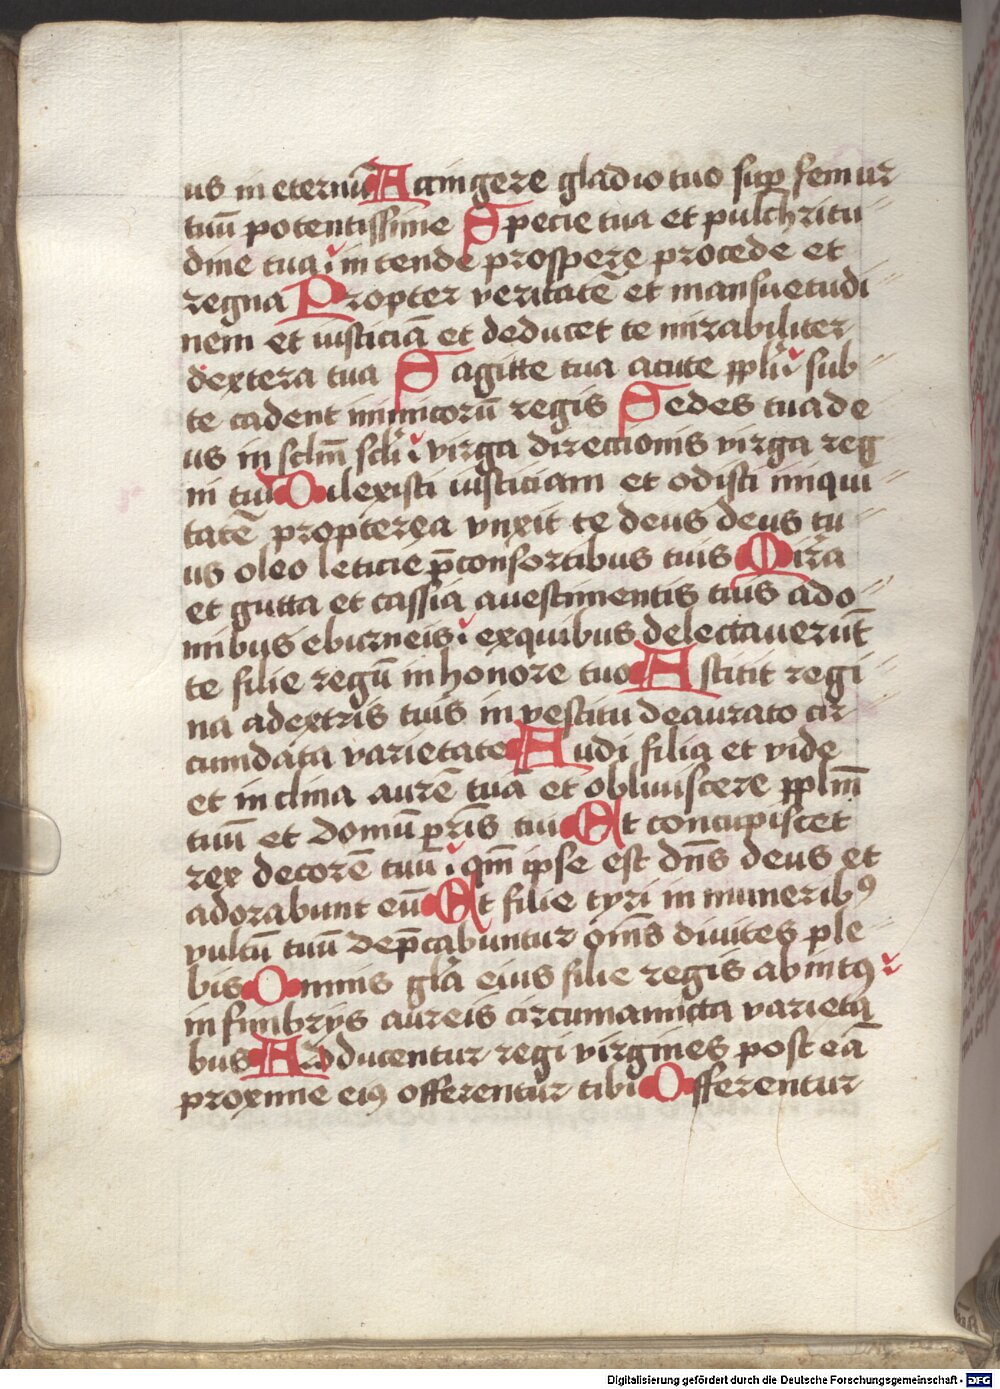 us in eternū Accingere gladio tuo suꝑ femur
tuū potentissime Specie tua et pulchritu
dine tua i intende prospere procede et
regna Propter veritatē et mansuetudi
nem et iusticiā et deducet te mirabiliter
dextera tua Sagitte tua acute ppl̄i i sub
te cadent inimicorū regis Sedes tua de
us in sclm̄ scl̄i i virga directionis virga reg
ni tui Dilexisti iusticiam et odisti iniqui
tatē propterea vnxit te deus deus tu
us oleo leticie p̄consortibus tuis Mirra
et gutta et cassia auestimentis tuis ado
mibus eburneis i exquibus delectauerūt
te filie regū in honore tuo Astitit regi
na adextris tuis in vestitu deaurato cir
cumdata varietate Audi filia et vide
et inclina aurē tuā et obliuiscere pplm̄
tuū et domū pr̄is tui Et concupiscet
rex decorē tuū i qm̄ ipse est dn̄s deus et
adorabunt eū Et filie tyri in muneribꝰ
vultū tuū dep̄cabuntur om̄s diuites ple
bis Omnis gl̄a eius filie regis abintꝰ
in fimbrijs aureis circumamicta varieta
bus Adducentur regi virgines post eā
proxime eiꝰ offerentur tibi Offerentur
Digitalisierung gefördert durch die Deutsche Forschungsgemeinschaft - DFG